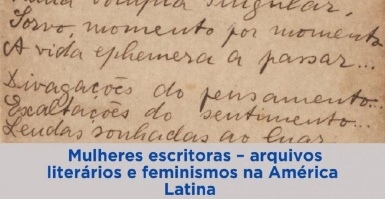 volupia singular,
Sorvo, momento por momento
A vida ephemera a passar...
Divagações do pensamento...
Exaltações do sentimento...
Lendas sonhadas ao luar
Mulheres escritoras – arquivos
literários e feminismos na América
Latina